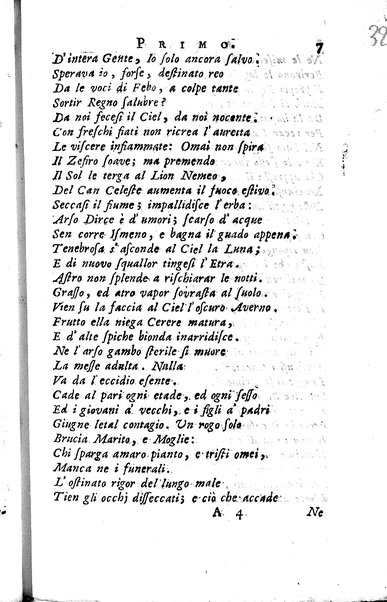 PRIMO. 7
39
D'intera Gente, Io solo ancora salvo!
Sperava io, forse, destinato reo
Da le voci di Febo, a colpe tante
Sortir Regno salubre?
Da noi fecesi il Ciel, da noi nocente.
Con freschi fiati non ricrea l'auretta
Le viscere infiammate: Omai non spira
Il Zefiro soave; ma premendo
Il Sol le terga al Lion Nemeo,
Del Can Celeste aumenta il fuoco estivo.
Seccasi il fiume; impallidisce l'erba:
Arso Dirçe è d'umori; scarso d'acque
Sen corre Ismeno, e bagna il guado appena.
Tenebrosa s'asconde al Ciel la Luna;
E di nuovo squallor tingesi l'Etra.
Astro non splende a rischiarar le notti.
Grasso, ed atro vapor sovrasta al suolo.
Vien su la faccia al Ciel l'oscuro Averno.
Frutto ella niega Cerere matura,
E d'alte spiche bionda inarridisce.
Ne l'arso gambo sterile si muore
La messe adulta. Nulla
Va da l'eccidio esente.
Cade al pari ogni etade, ed ogni sesso
Ed i giovani a' vecchj, e i figli a' padri
Giugne letal contagio. Un rogo solo
Brucia Marito, e Moglie:
Chi sparga amaro pianto, e tristi omei,
Manca ne i funerali.
L'ostinato rigor del lungo male
Tien gli occhj disseccati; e ciò che accade
A 4 Ne